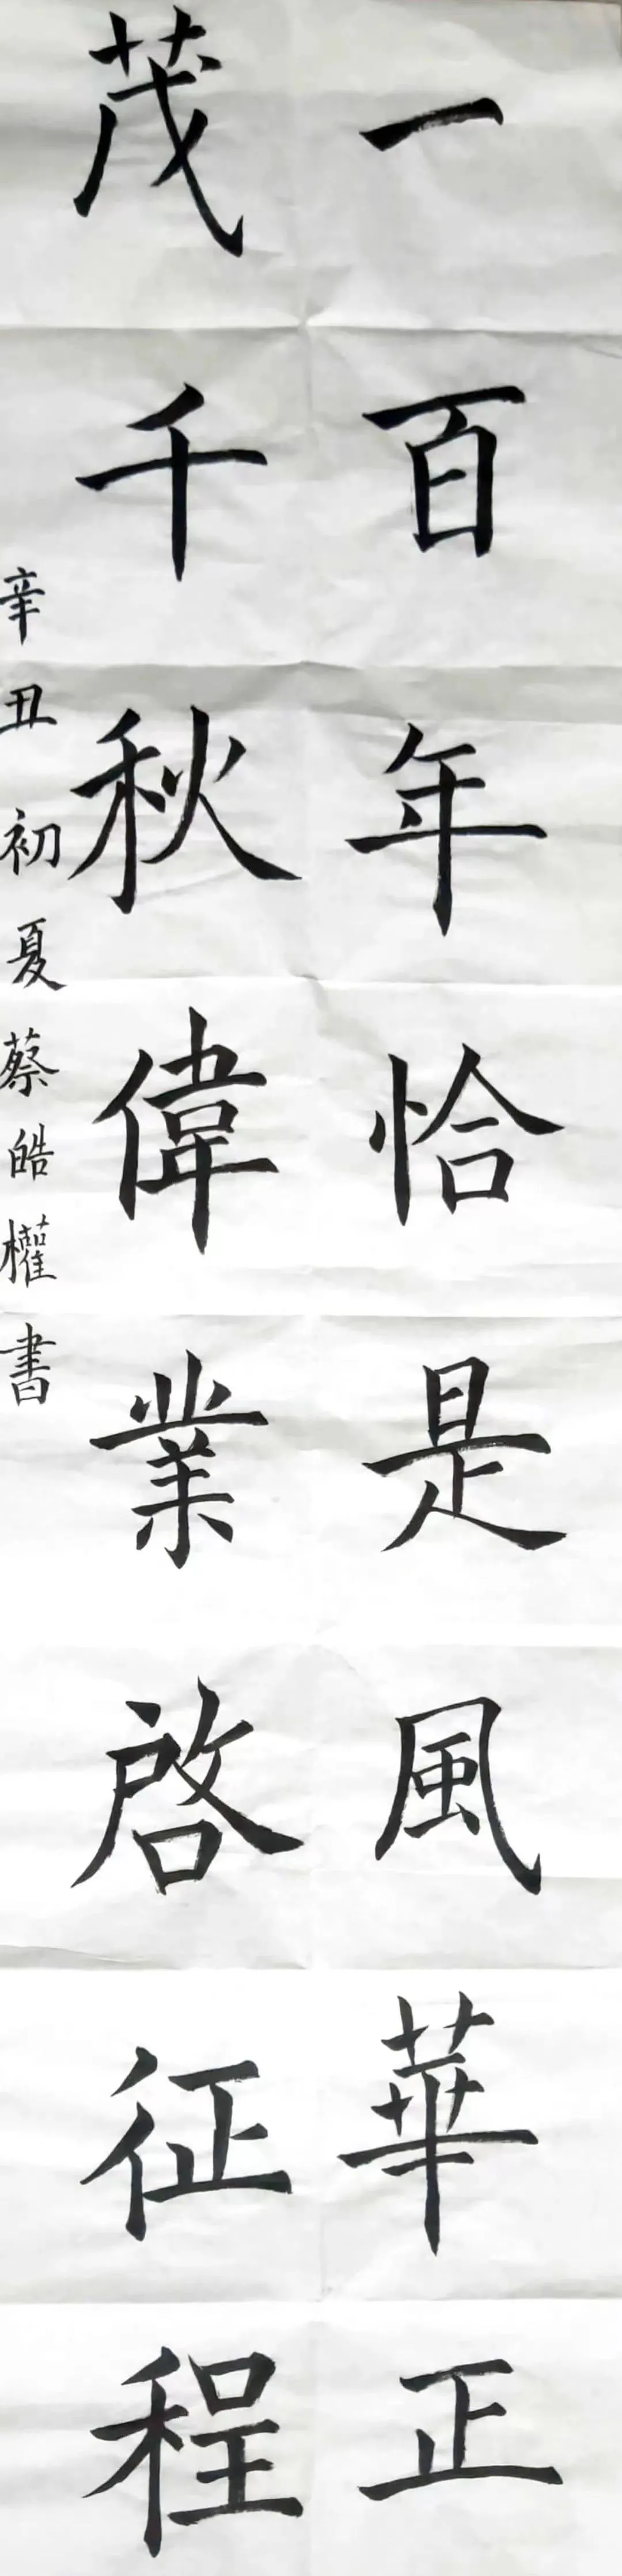 一百年恰是風華正
茂千秋偉業啓征程
辛丑初夏蔡皓權書